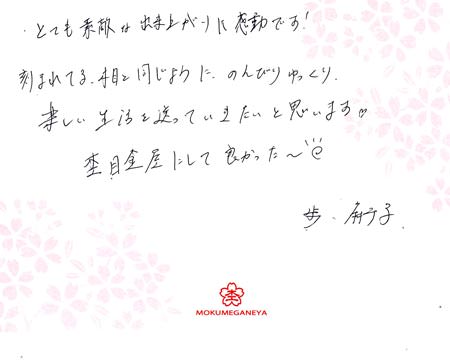 ・とても素敵な出来上がりに感動です!
刻まれてる、木目と同じように、のんびりゆっくり、
楽しい生活を送っていきたいと思います♡
杢目金屋にして良かった〜
歩、麻子
杢
MOKUMEGANEYA